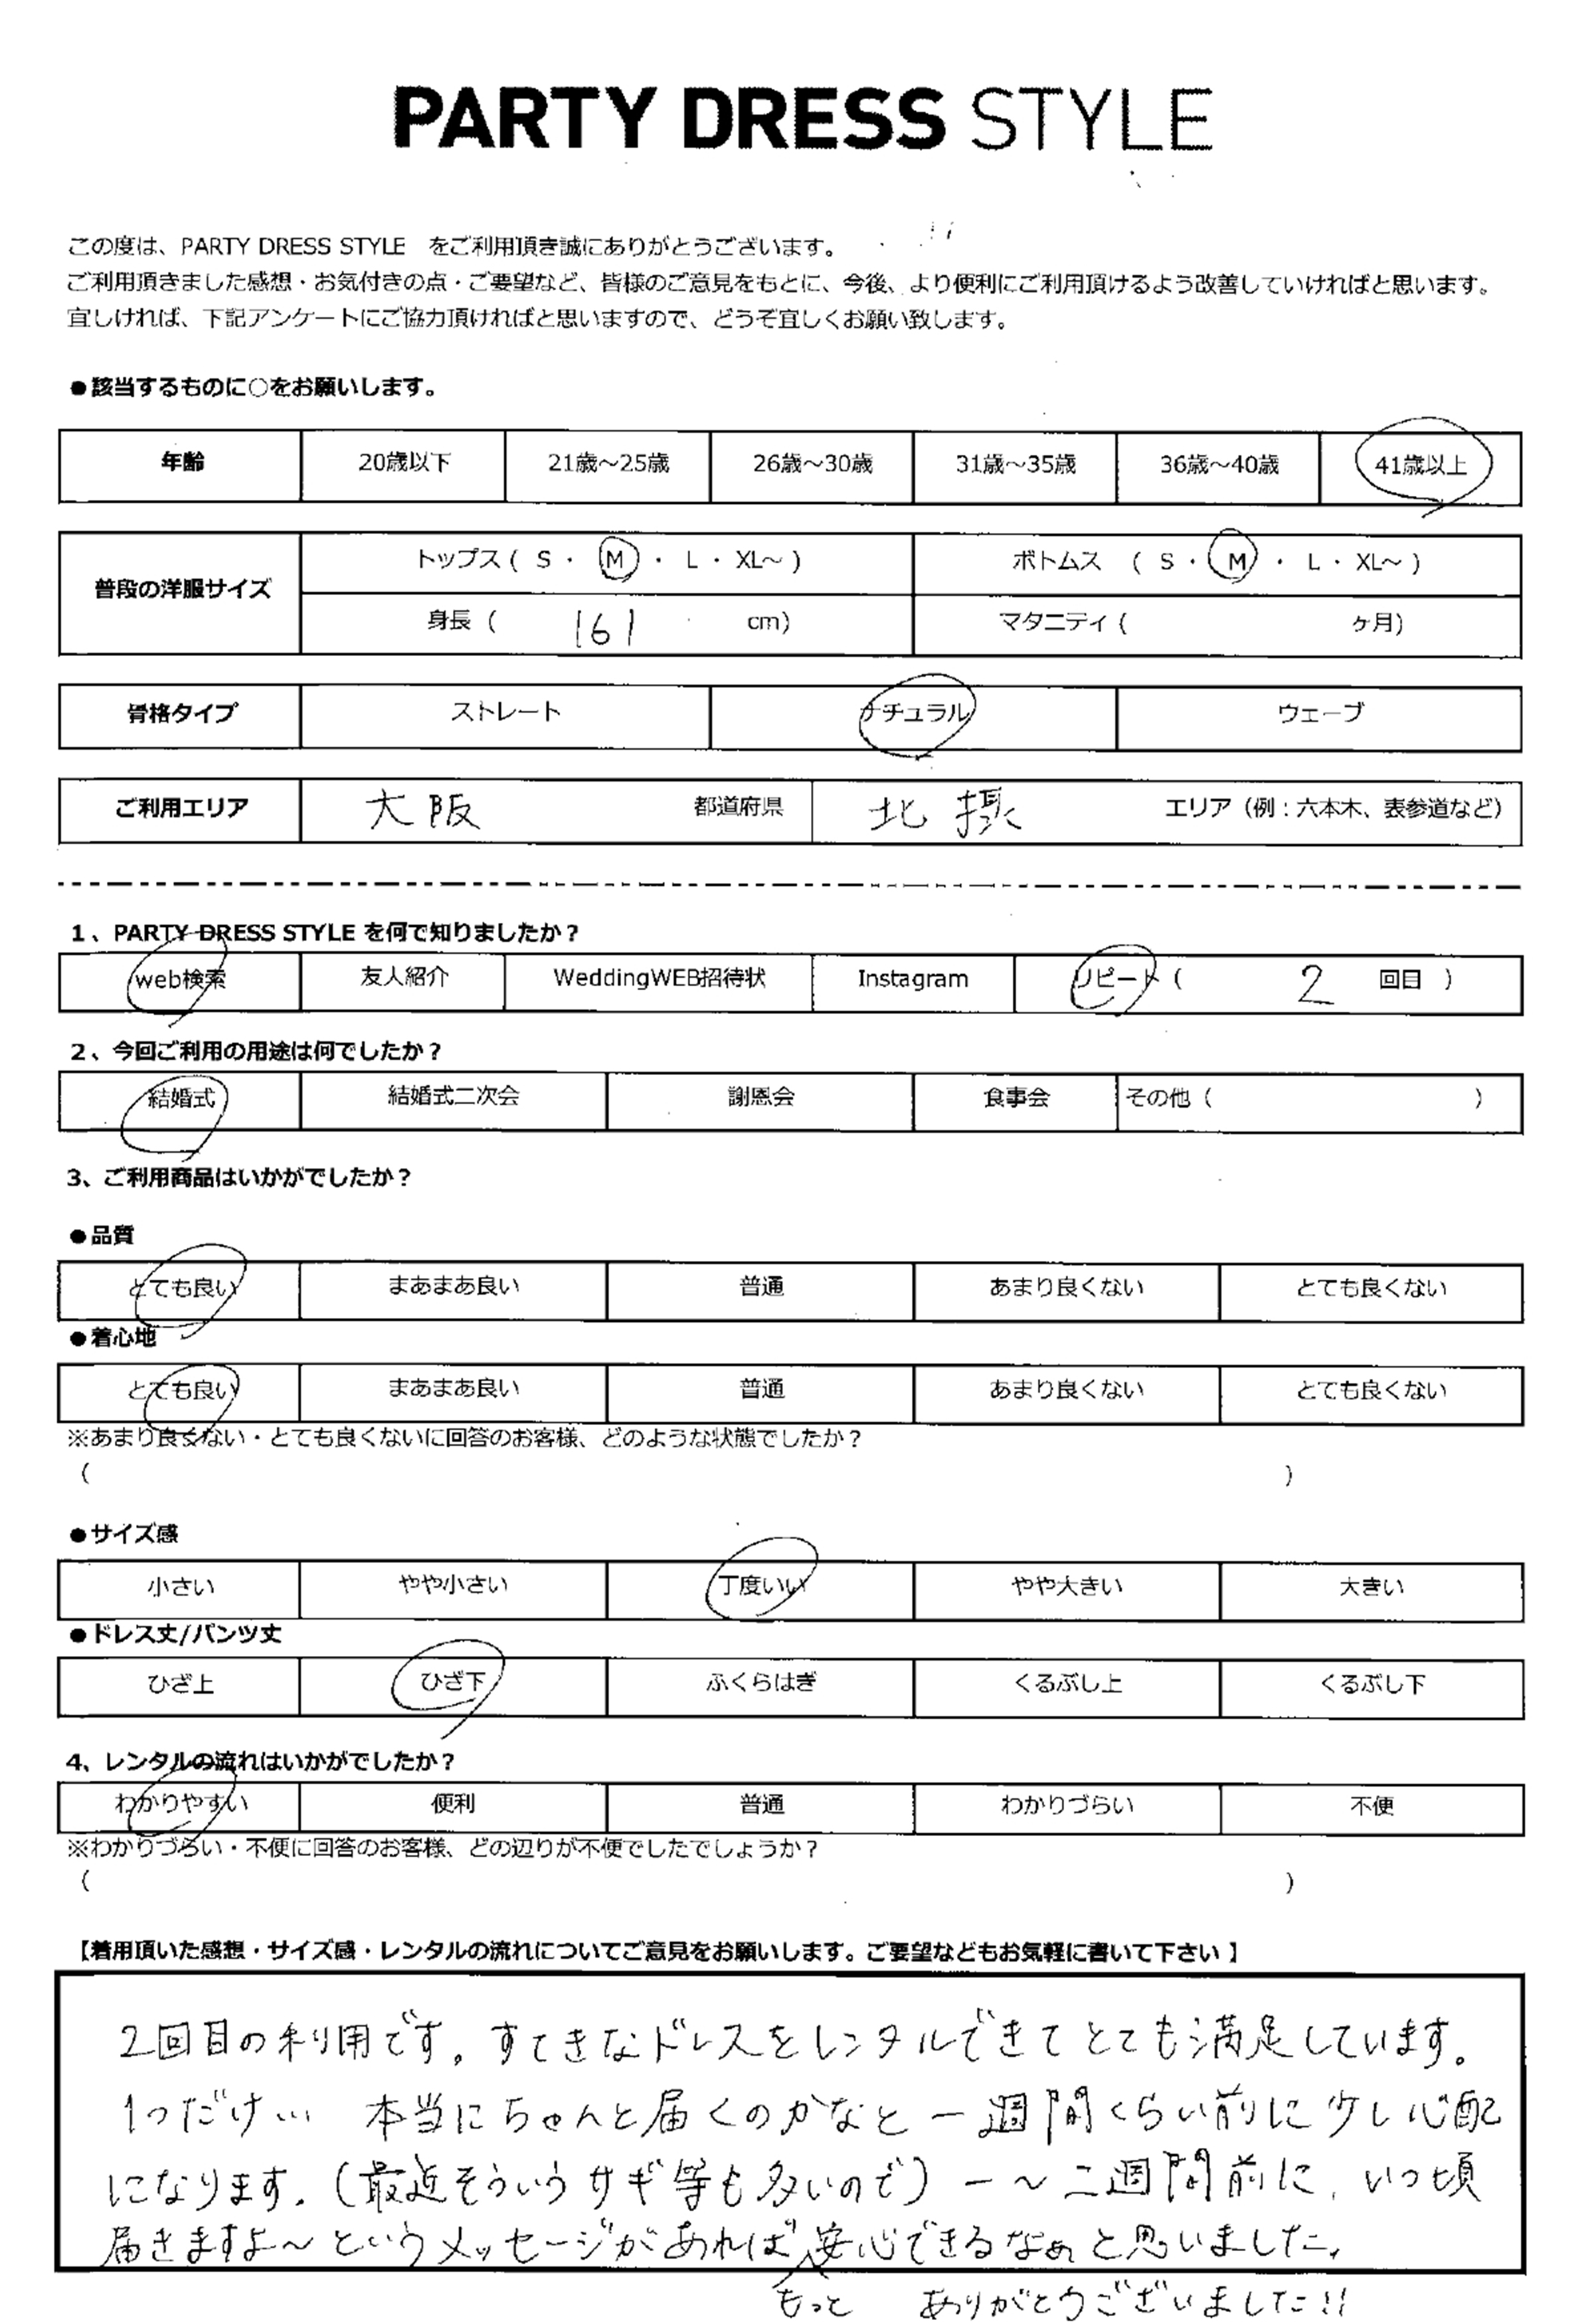 PARTY DRESS STYLE
この度は、PARTY DRESS STYLE をご利用頂き誠にありがとうございます。
ご利用頂きました感想・お気付きの点・ご要望など、皆様のご意見をもとに、今後、より便利にご利用頂けるよう改善していければと思います。
宜しければ、下記アンケートにご協力頂ければと思いますので、どうぞ宜しくお願い致します。
●該当するものに○をお願いします。
年齢 20歳以下 21歳～25歳 26歳～30歳 31歳～35歳 36歳～40歳 41歳以上
普段の洋服サイズ
トップス ( S ・ M ・ L ・ XL～ ) ボトムス ( S ・ M ・ L ・ XL～ )
身長 ( 161 cm) マタニティ ( ヶ月)
骨格タイプ ストレート ナチュラル ウェーブ
ご利用エリア 大阪 都道府県 北摂 エリア（例：六本木、表参道など）
1、PARTY DRESS STYLE を何で知りましたか？
web検索 友人紹介 WeddingWEB招待状 Instagram リピート ( 2 回目 )
2、今回ご利用の用途は何でしたか？
結婚式 結婚式二次会 謝恩会 食事会 その他 ( )
3、ご利用商品はいかがでしたか？
●品質
とても良い まあまあ良い 普通 あまり良くない とても良くない
●着心地
とても良い まあまあ良い 普通 あまり良くない とても良くない
※あまり良くない・とても良くないに回答のお客様、どのような状態でしたか？
( )
●サイズ感
小さい やや小さい 丁度いい やや大きい 大きい
●ドレス丈/パンツ丈
ひざ上 ひざ下 ふくらはぎ くるぶし上 くるぶし下
4、レンタルの流れはいかがでしたか？
わかりやすい 便利 普通 わかりづらい 不便
※わかりづらい・不便に回答のお客様、どの辺りが不便でしたでしょうか？
( )
【着用頂いた感想・サイズ感・レンタルの流れについてご意見をお願いします。ご要望などもお気軽に書いて下さい】
2回目の利用です。すてきなドレスをレンタルできてとても満足しています。
1つだけ… 本当にちゃんと届くのかなと一週間くらい前に少し心配
になります。(最近そういうサギ等も多いので) 一～二週間前に、いつ頃
届きますよ～というメッセージがあれば安心できるなぁと思いました。
もっと ありがとうございました!!